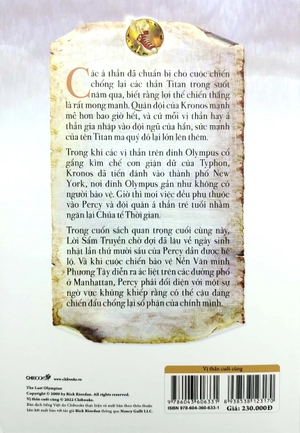 Các á thần đã chuẩn bị cho cuộc chiến
chống lại các thần Titan trong suốt
năm qua, biết rằng lợi thế chiến thắng
là rất mong manh. Quân đội của Kronos mạnh
mẽ hơn bao giờ hết, và cứ mỗi vị thần hay á
thần gia nhập vào đội ngũ của hắn, sức mạnh
của tên Titan ma quỷ đó lại lớn thêm lên.
Trong khi các vị thần trên đỉnh Olympus cố
gắng kìm chế cơn giận dữ của Typhon,
Kronos đã tiến đánh vào thành phố New
York, nơi đỉnh Olympus gần như không có
người bảo vệ. Giờ thì mọi việc đều phụ thuộc
vào Percy và đội quân á thần trẻ tuổi nhằm
ngăn lại Chúa tể Thời gian.
Trong cuốn sách quan trọng cuối cùng này,
Lời Sấm Truyền chờ đợi đã lâu về ngày sinh
nhật lần thứ mười sáu của Percy dần được hé
lộ. Và khi cuộc chiến bảo vệ Nền Văn minh
Phương Tây diễn ra ác liệt trên các đường phố
ở Manhattan, Percy phải đối diện với một sự
ngờ vực khủng khiếp rằng có thể cậu đang
chiến đấu chống lại số phận của chính mình.
CHIBOOKS www.chibooks.com
The Last Olympian
Copyright © 2009 by Rick Riordan.
Vị thần cuối cùng © 2022 Chibooks.
9 786043 606331
8 938538 123170
Vị thần cuối cùng
ISBN: 978-604-360-633-1
Giá: 230.000Đ